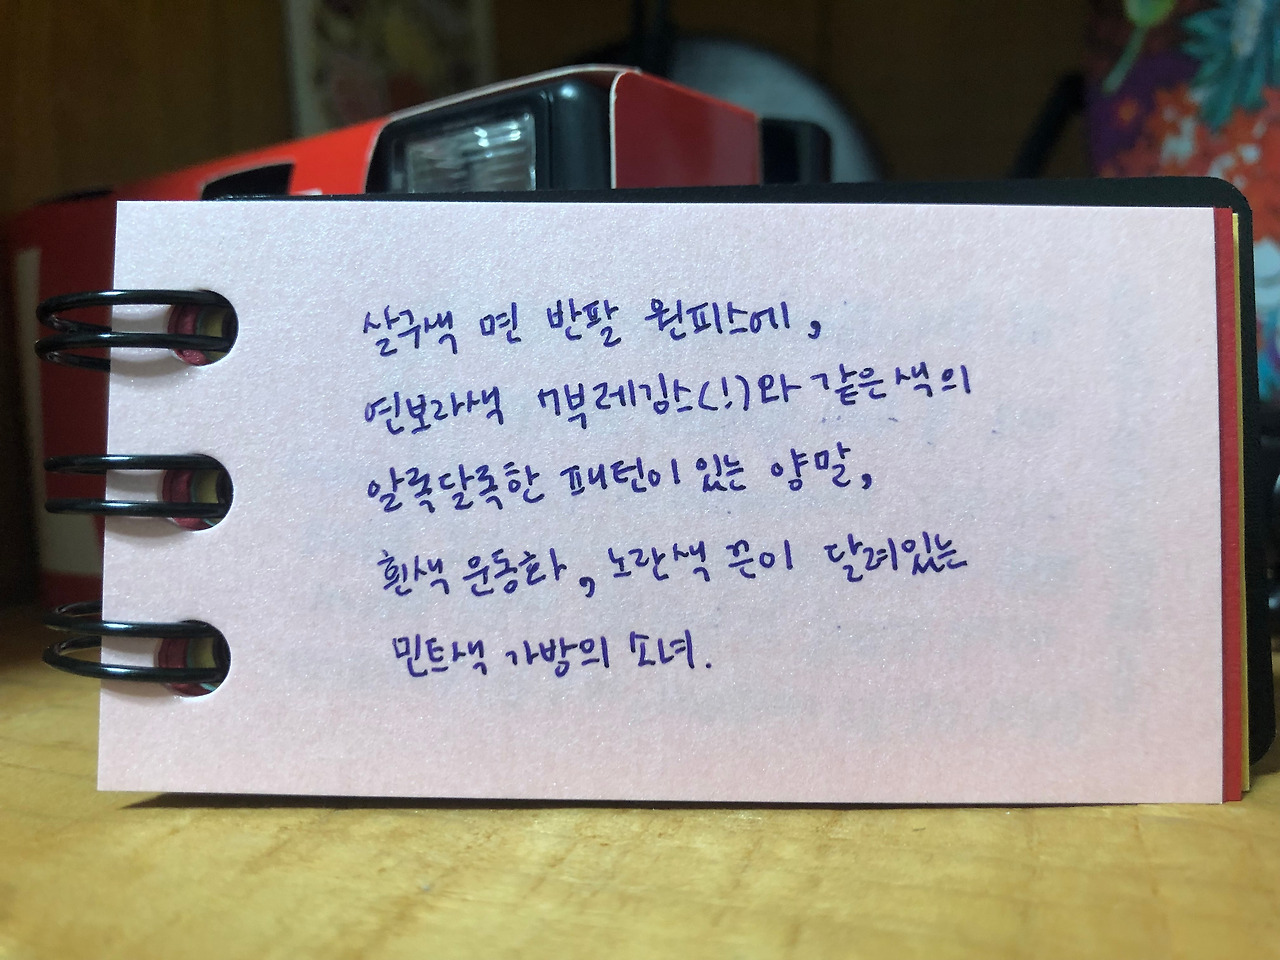 살구색 면 반팔 원피스에,
연보라색 7부레깅스(!)와 같은색의
알록달록한 패턴이 있는 양말,
흰색 운동화, 노란색 끈이 달려있는
민트색 가방의 소녀.